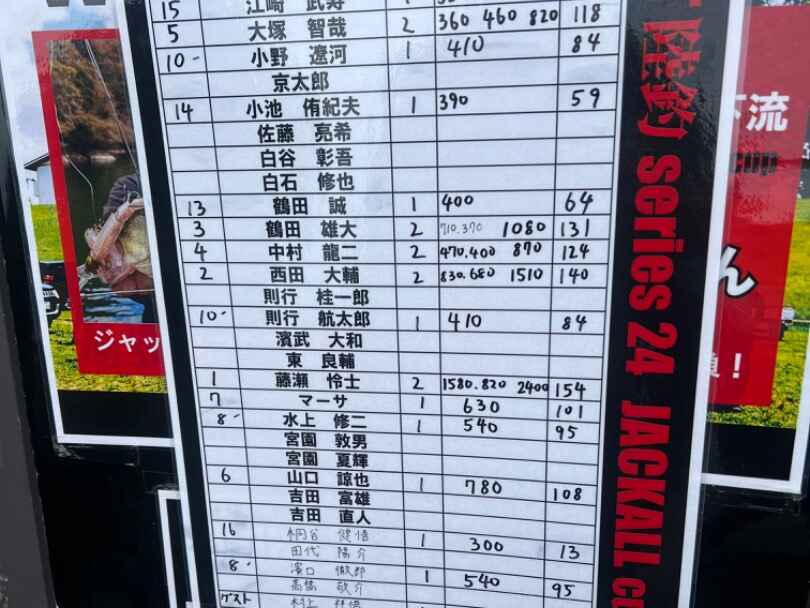 15 江崎 武寿
5 大塚 智哉 2 360 460 820 118
10- 小野 遼河 1 410 84
京太郎
14 小池 侑紀夫 1 390 59
佐藤 亮希
白谷 彰吾
白石 修也
13 鶴田 誠 1 400 64
3 鶴田 雄大 2 710.370 1080 131
4 中村 龍二 2 470.400 870 124
2 西田 大輔 2 830.680 1510 140
則行 桂一郎
10- 則行 航太郎 1 410 84
濱武 大和
東 良輔
1 藤瀬 怜士 2 1580.820 2400 154
7 マーサ 1 630 101
8- 水上 修二 1 540 95
宮園 敦男
宮園 夏輝
6 山口 諒也 1 780 108
吉田 富雄
吉田 直人
16 桐谷 健悟 1 300 13
田代 陽介
8- 濱口 徹郎 1 540 95
高橋 敬介
ゲスト 村上
series 24 JACKALL cu
ジャッ
下流
cup
ん
！